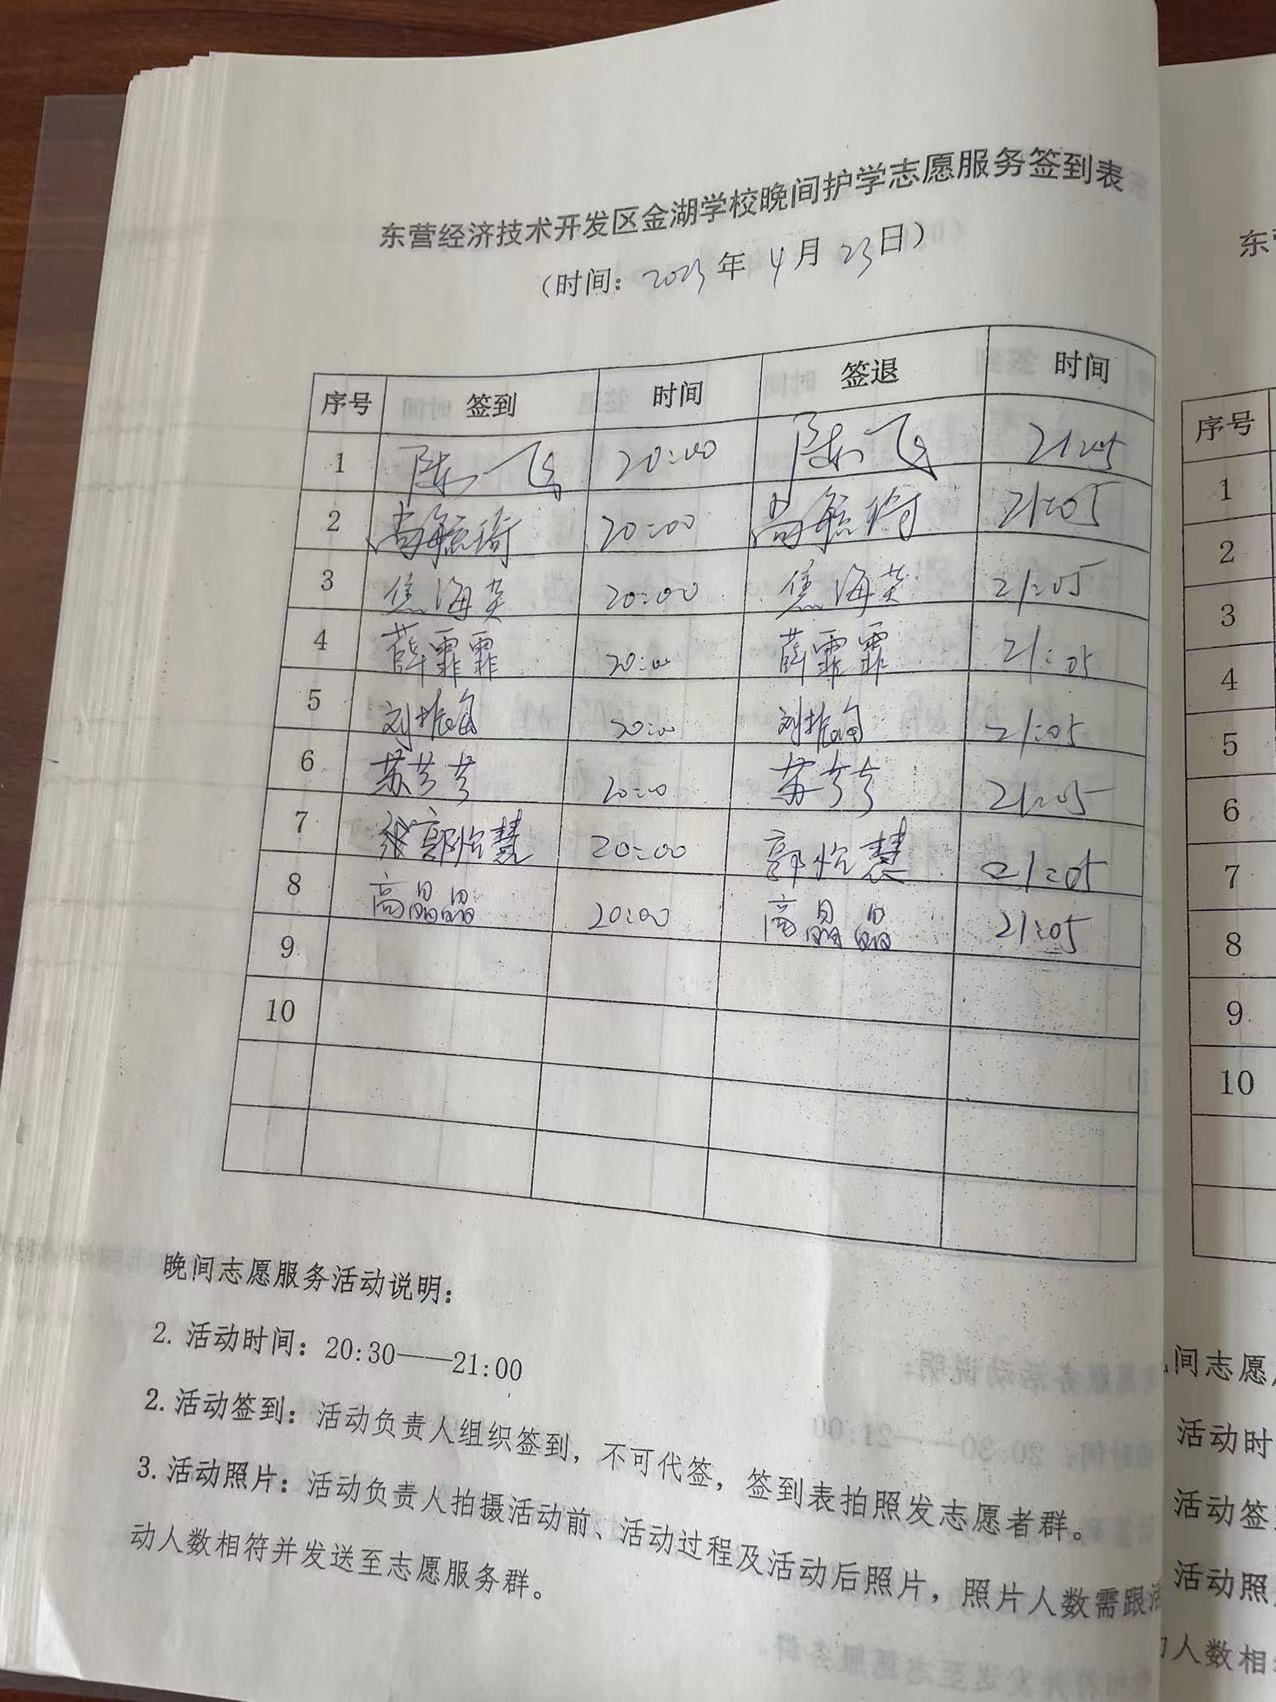 东营经济技术开发区金湖学校晚间护学志愿服务签到表
（时间：2023年 4月 23日）
序号 签到 时间 签退 时间
1 陈飞 20:00 陈飞 21:05
2 尚毓琦 20:00 尚毓琦 21:05
3 焦海英 20:00 焦海英 21:05
4 薛霏霏 20:00 薛霏霏 21:05
5 刘振 20:00 刘振 21:05
6 苏兮兮 20:00 苏兮兮 21:05
7 郭怡慧 20:00 郭怡慧 21:05
8 高晶晶 20:00 高晶晶 21:05
9
10
晚间志愿服务活动说明：
2. 活动时间：20:30——21:00
2. 活动签到：活动负责人组织签到，不可代签，签到表拍照发志愿者群。
3. 活动照片：活动负责人拍摄活动前、活动过程及活动后照片，照片人数需跟活
动人数相符并发送至志愿服务群。
东营
序号
1
2
3
4
5
6
7
8
9
10
间志愿
活动时
活动签
活动照
人数相